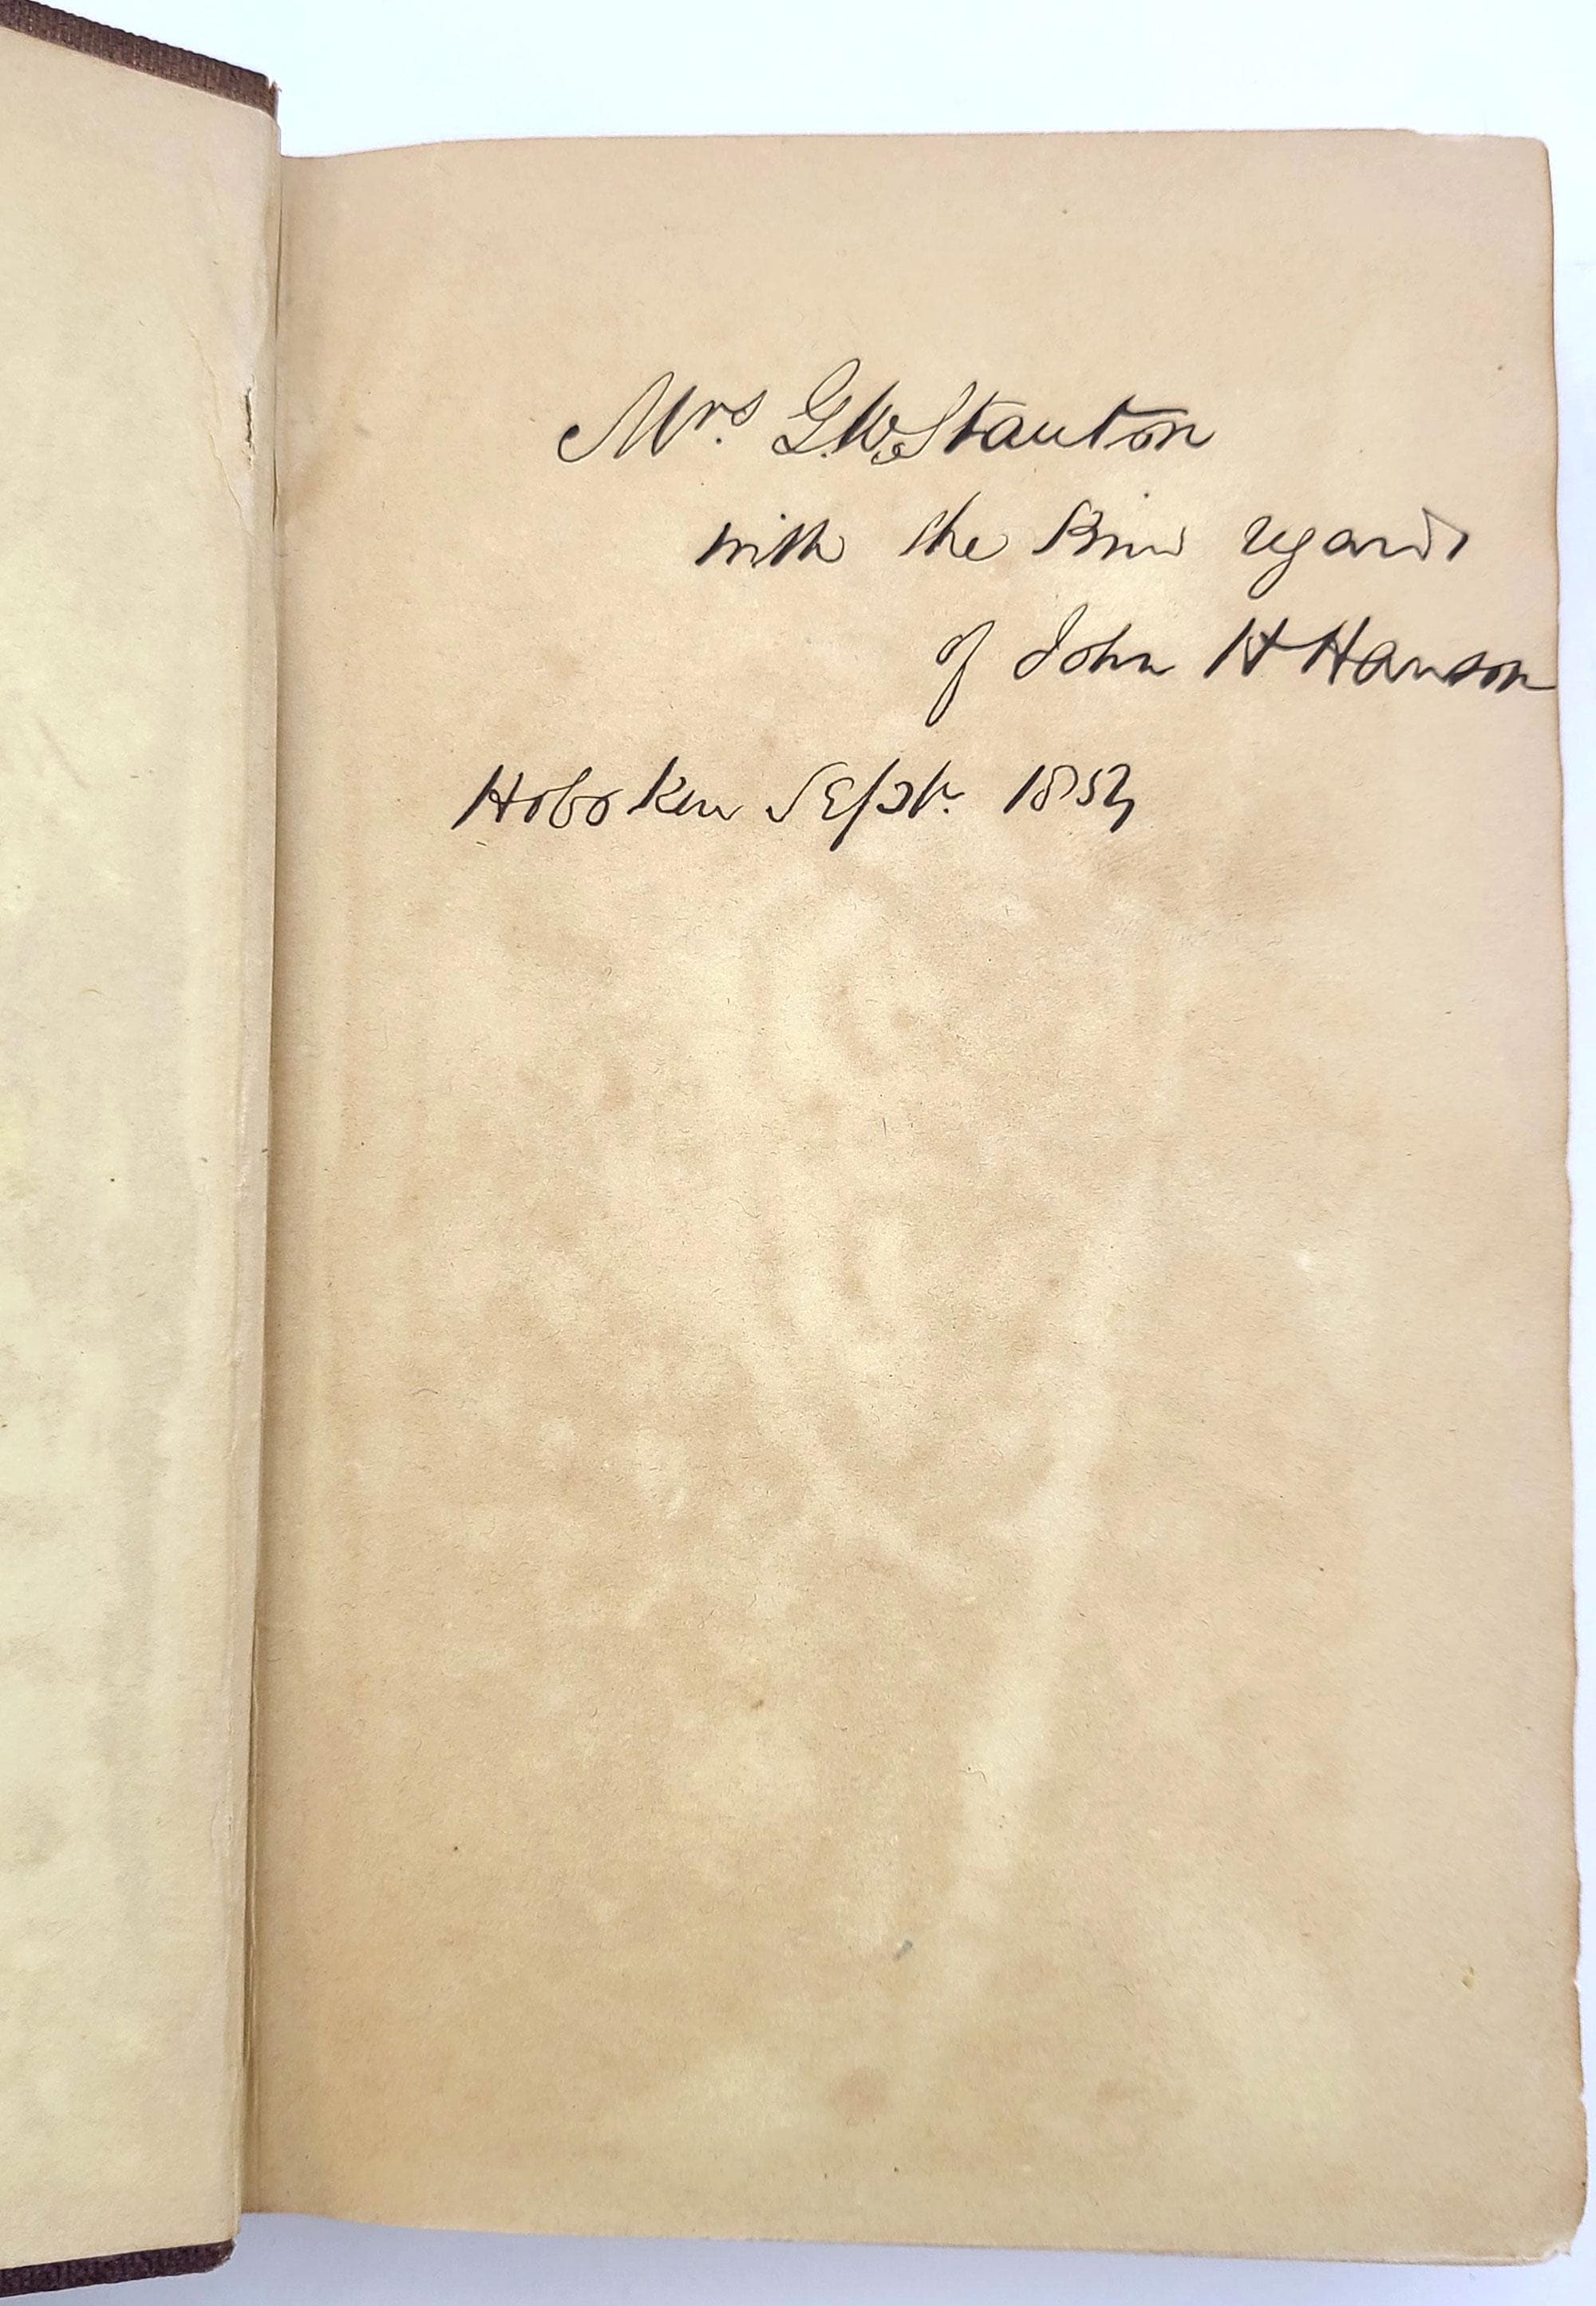 Mrs. G.W. Stanton
with the kind regards
of John H Hanson
Hoboken Sept. 1854